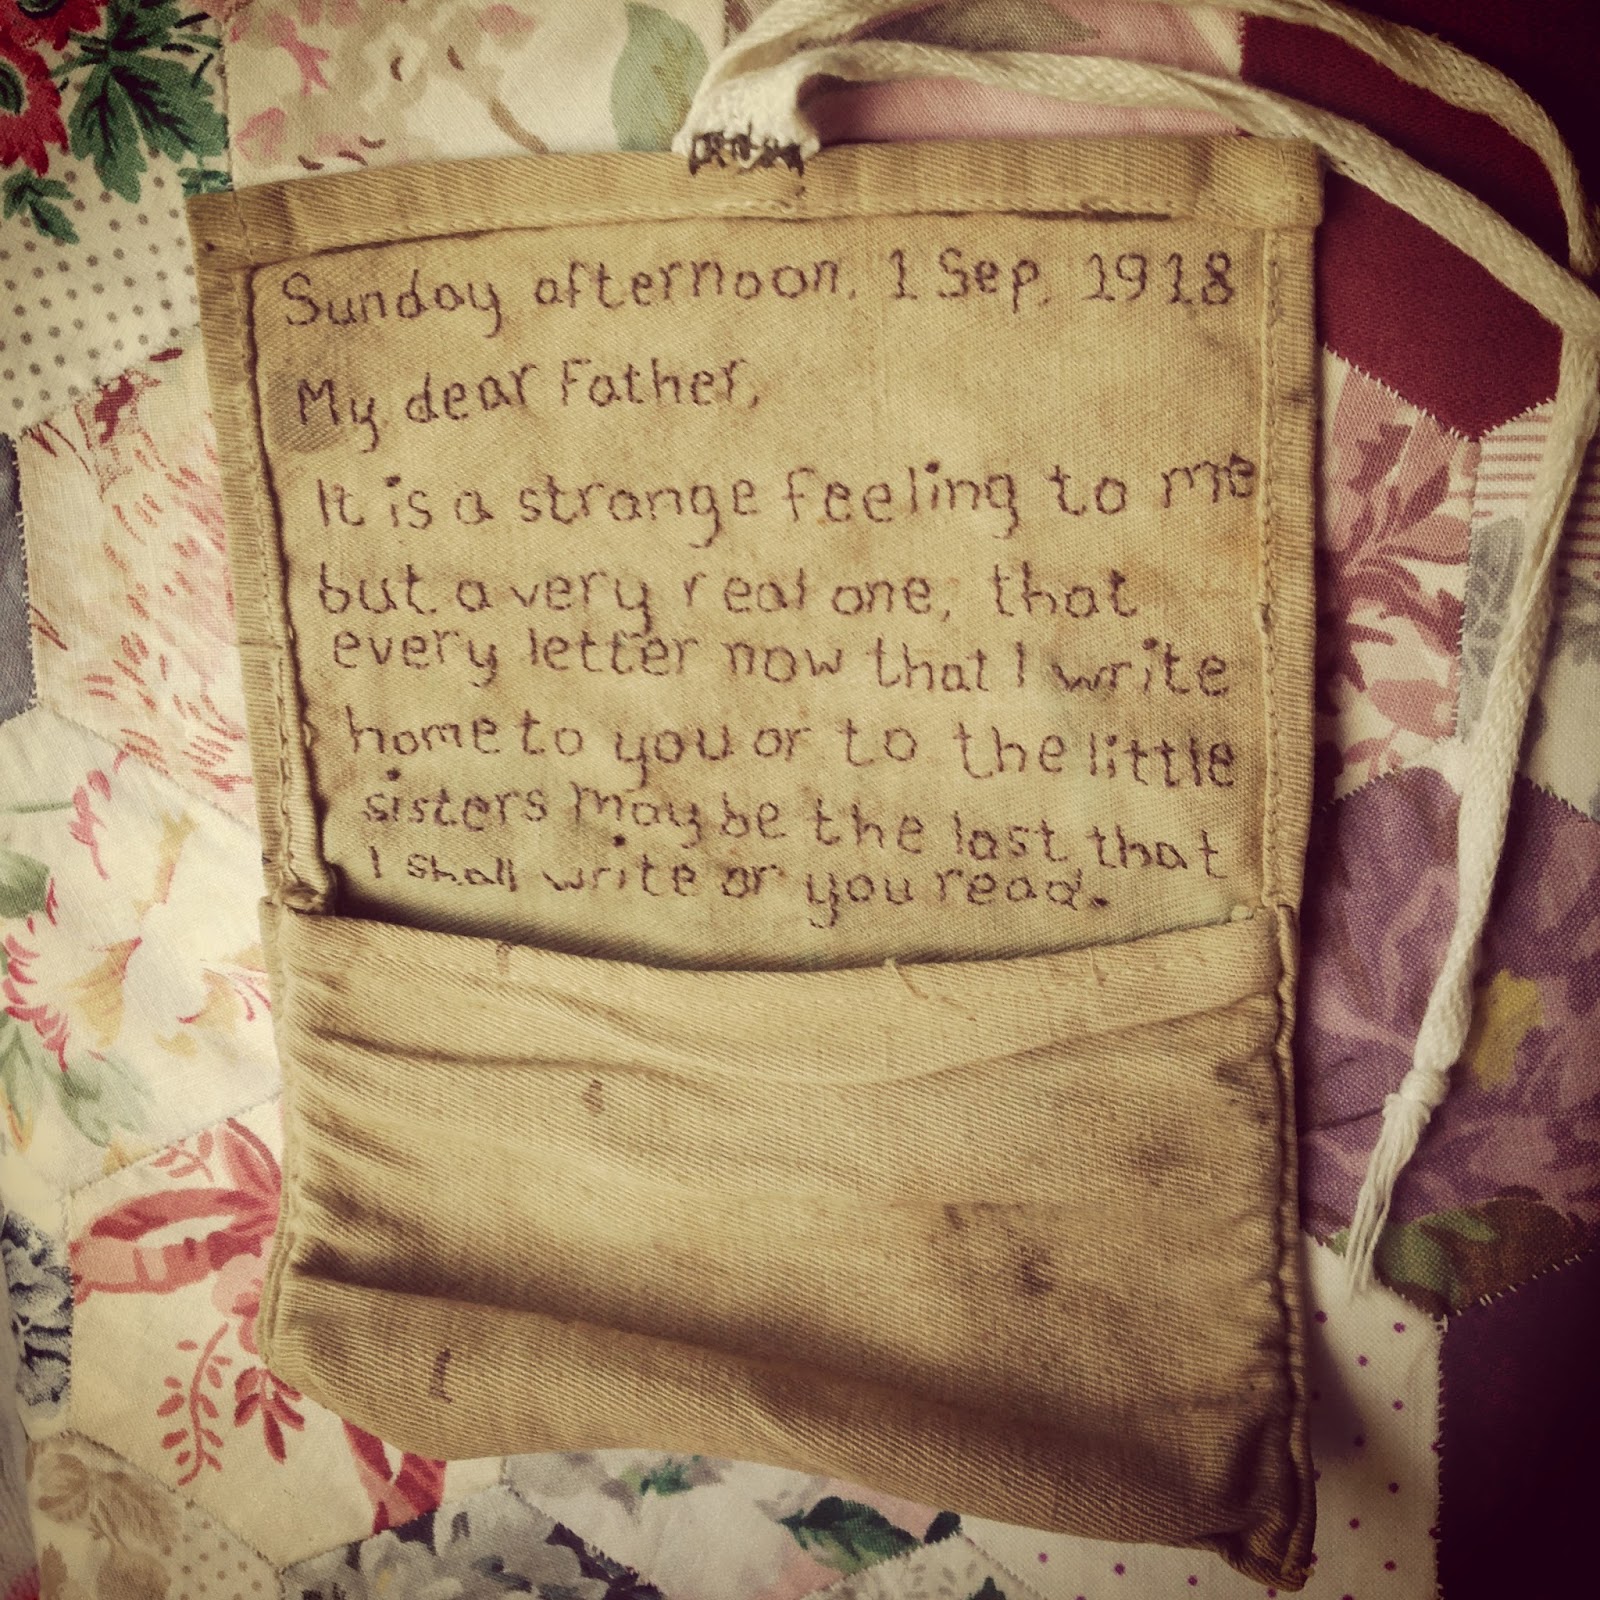 Sunday afternoon, 1 Sep. 1918
My dear Father,
It is a strange feeling to me
but a very real one, that
every letter now that I write
home to you or to the little
sisters may be the last that
I shall write or you read.